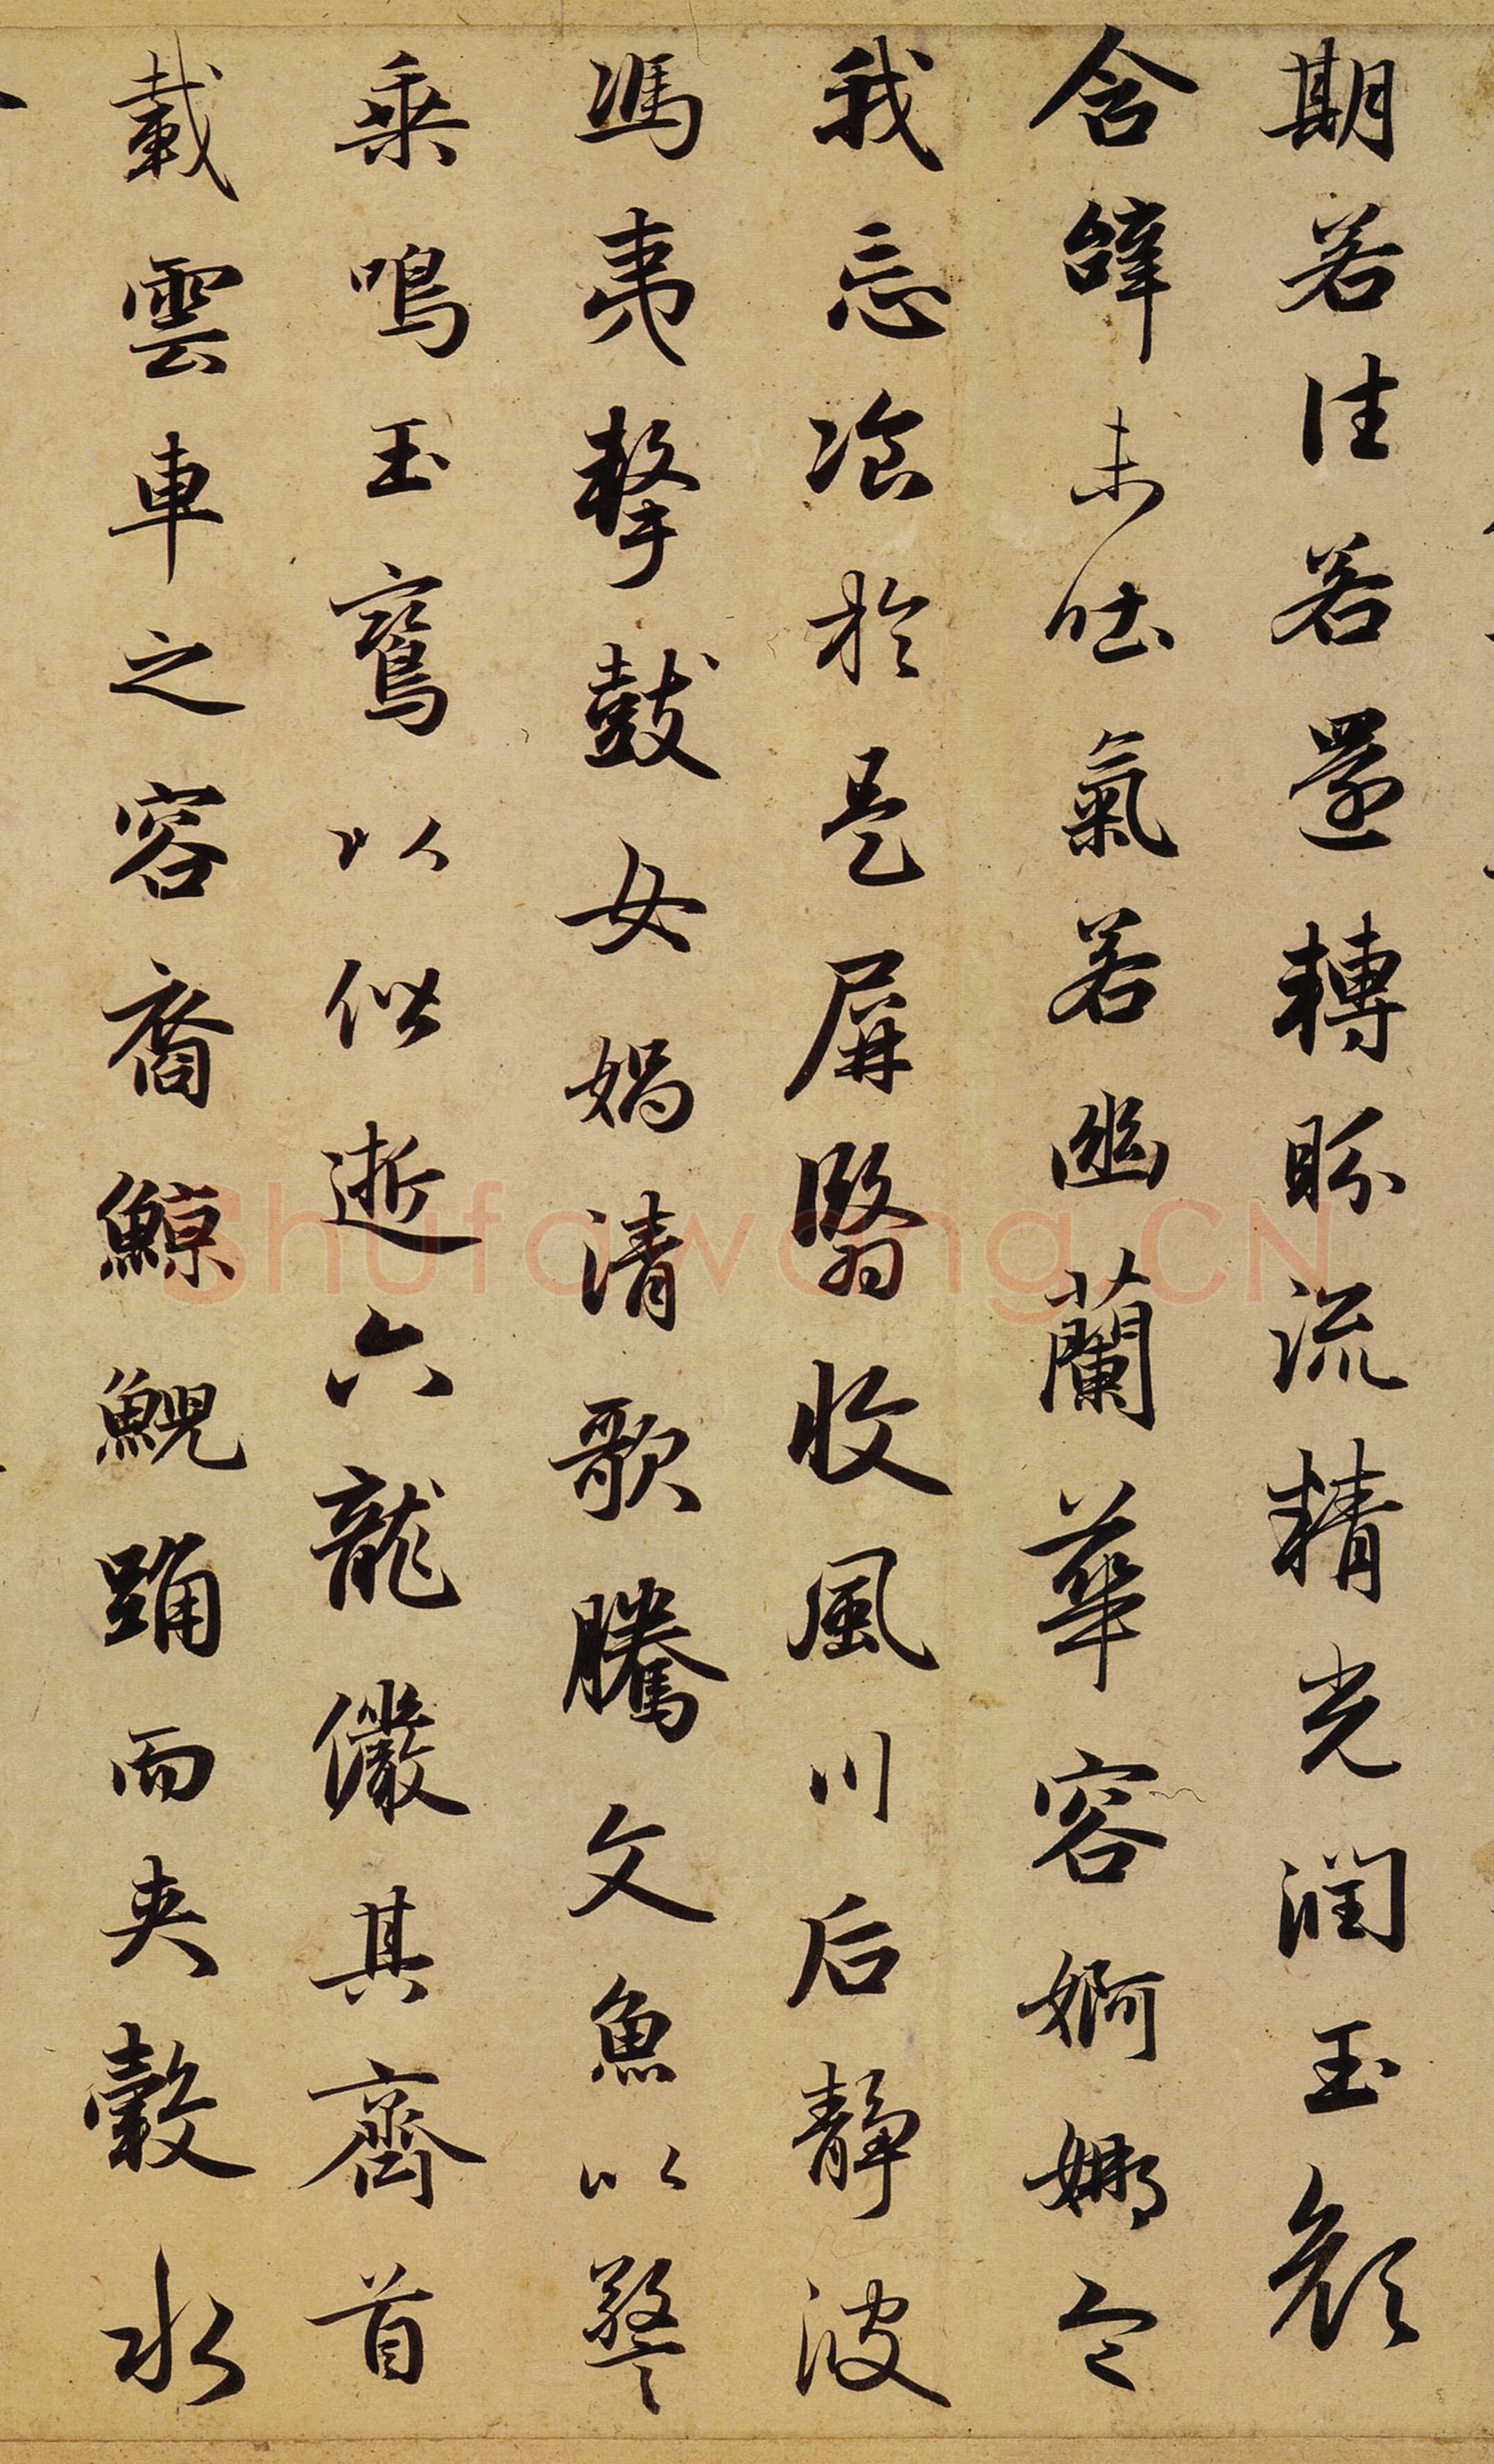 期若往若還轉盼流精光潤玉顏
含辭未吐氣若幽蘭華容婀娜令
我忘飡於是屏翳收風川后靜波
馮夷擊鼓女媧清歌騰文魚以警
乗鳴玉鸞以偕逝六龍儼其齊首
載雲車之容裔鯨鯢踊而夾轂水
shufawang.CN